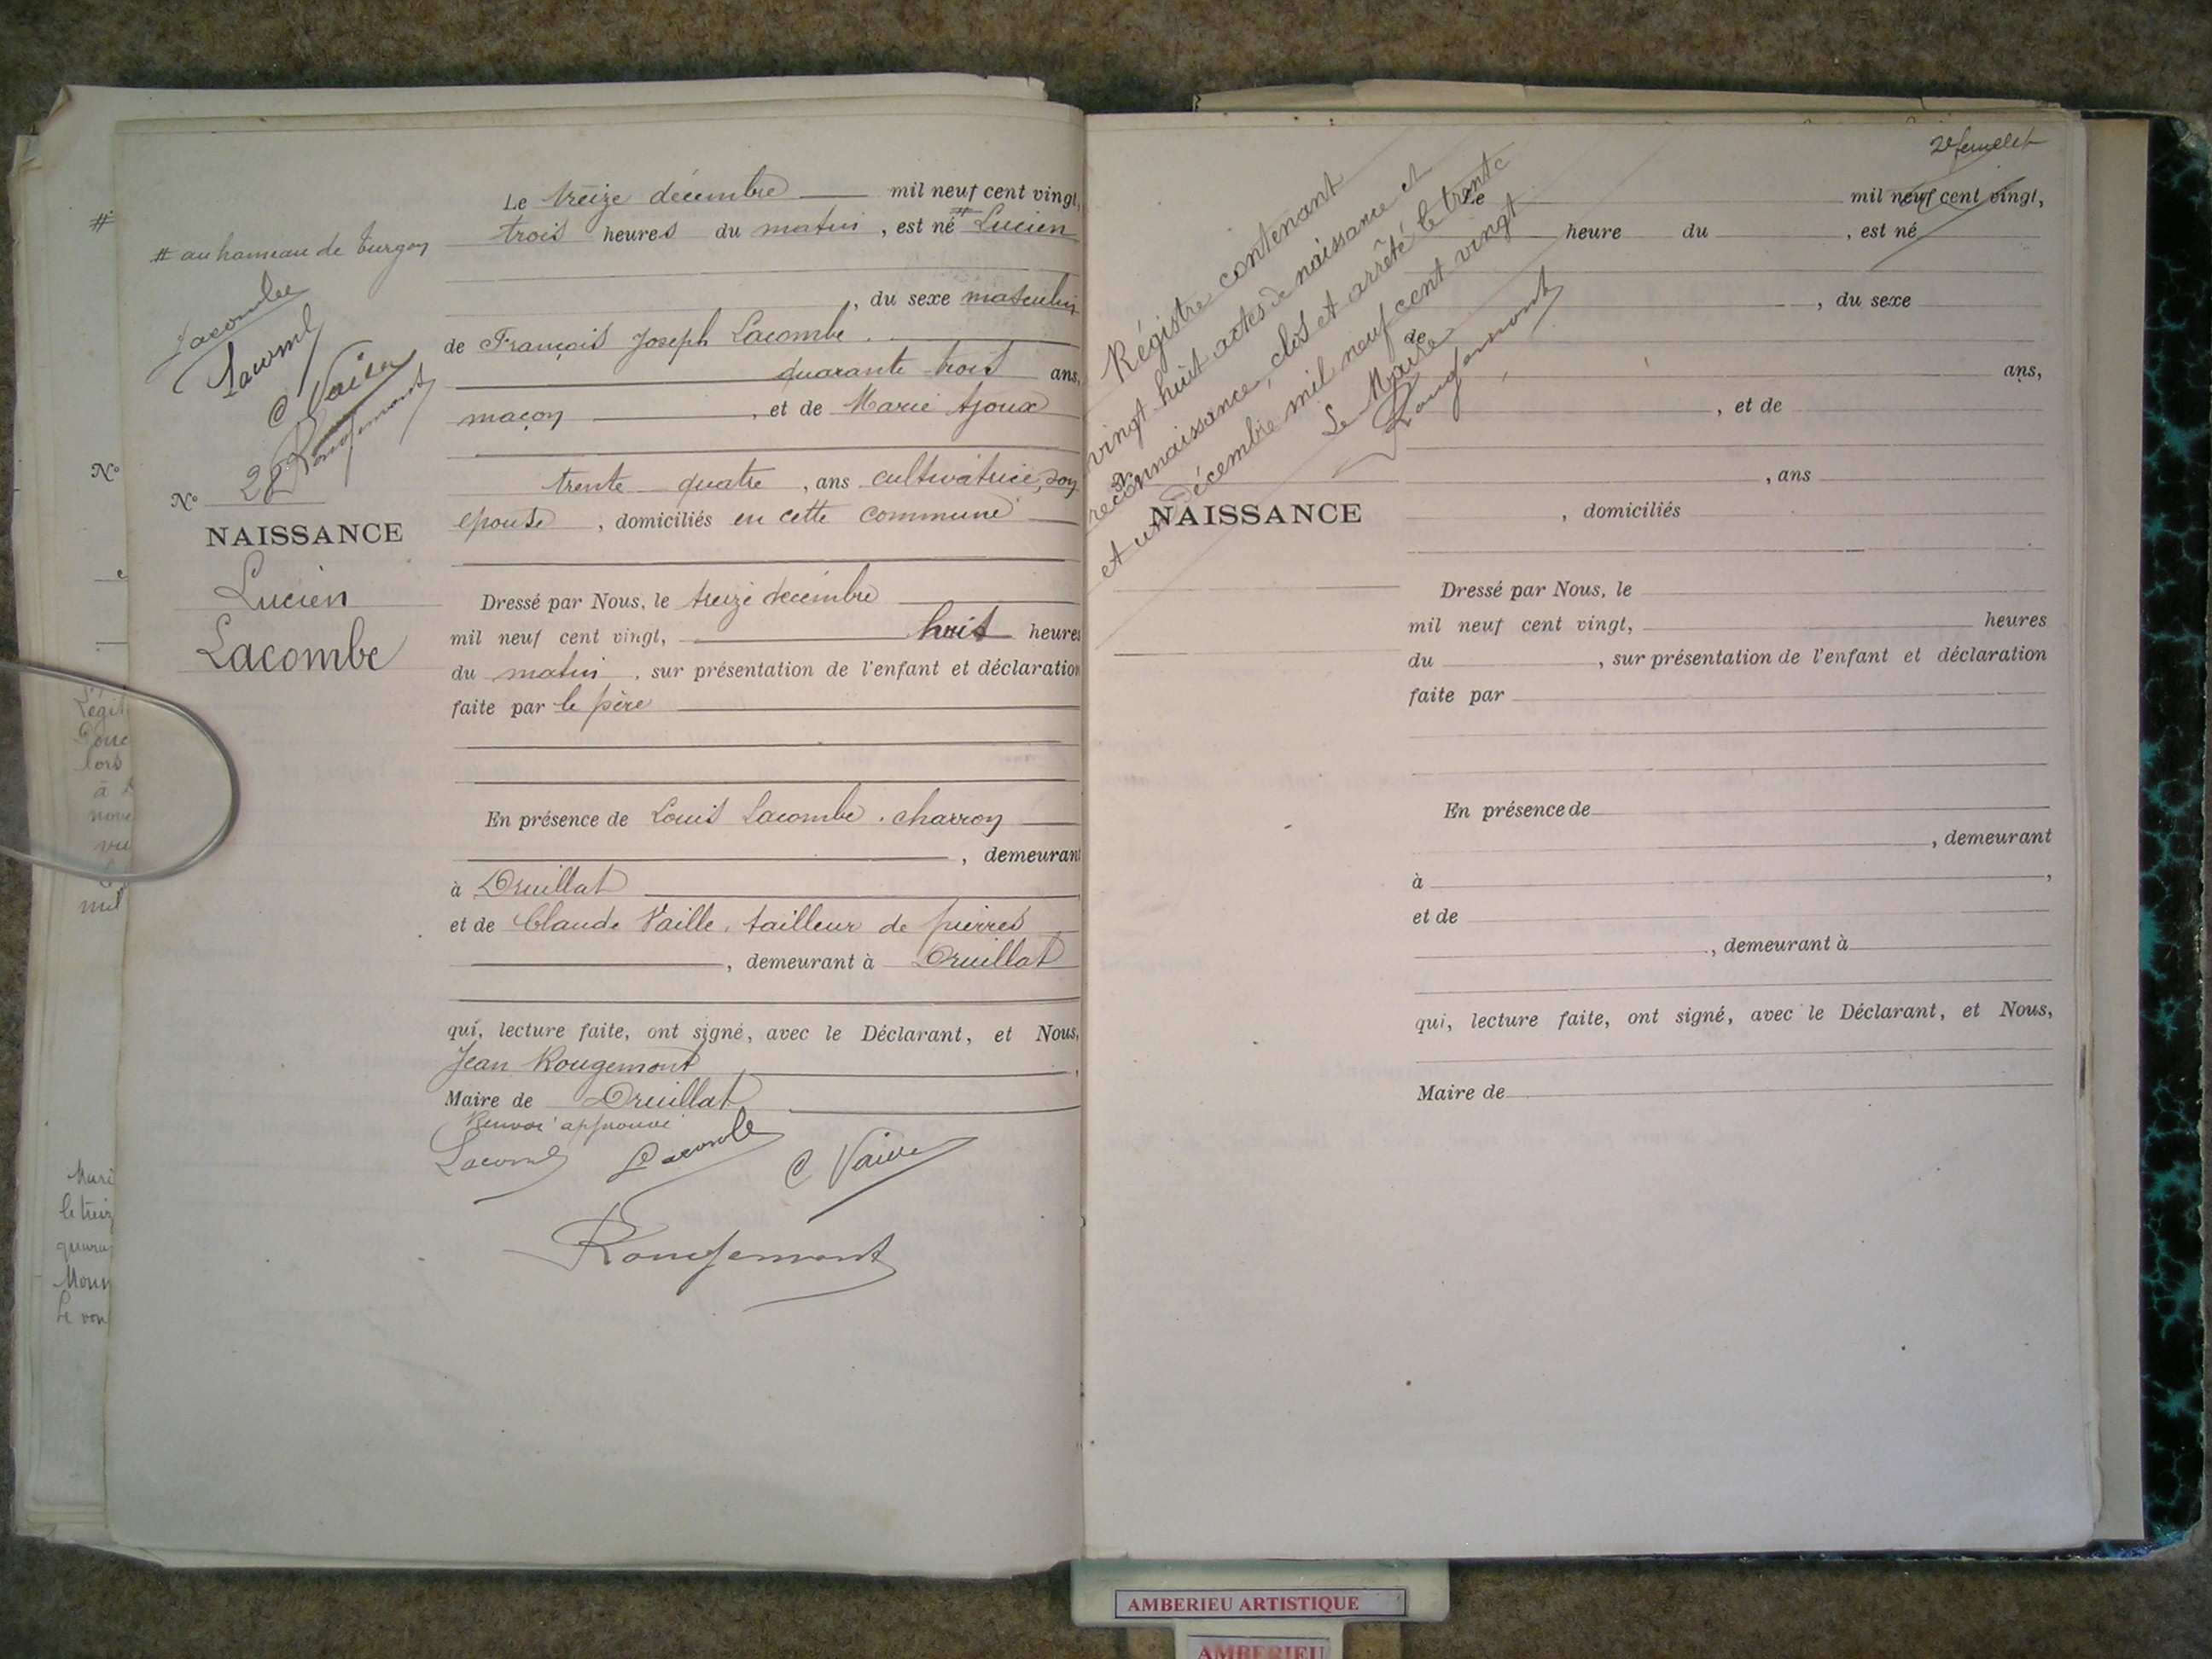 #
# au hameau de Turgon
Lacombe
Lacombe
C Vaille
Rougemont
N° 28
NAISSANCE
Lucien
Lacombe
Le treize décembre mil neuf cent vingt,
trois heures du matin, est né # Lucien
, du sexe masculin
de François Joseph Lacombe.
quarante trois ans,
maçon, et de Marie Ajoux
trente quatre, ans cultivatrice, son
épouse, domiciliés en cette commune
Dressé par Nous, le treize décembre
mil neuf cent vingt, huit heures
du matin, sur présentation de l'enfant et déclaration
faite par le père
En présence de Louis Lacombe, charron
, demeurant
à Druillat
et de Claude Vaille, tailleur de pierres
, demeurant à Druillat
qui, lecture faite, ont signé, avec le Déclarant, et Nous,
Jean Rougemont,
Maire de Druillat
Renvoi approuvé
Lacombe Lacombe C Vaille
Rougemont
N°
Muri
le treiz
mil
2e feuillet
Régistre contenant
vingt huit actes de naissance et
reconnaissance, clos et arrêté le trente
et un décembre mil neuf cent vingt
Le Maire
Rougemont
N°
NAISSANCE
Le mil neuf cent vingt,
heure du, est né
, du sexe
de
ans,
, et de
, ans
, domiciliés
Dressé par Nous, le
mil neuf cent vingt, heures
du, sur présentation de l'enfant et déclaration
faite par
En présence de
, demeurant
à,
et de
, demeurant à
qui, lecture faite, ont signé, avec le Déclarant, et Nous,
Maire de
AMBERIEU ARTISTIQUE
AMBERIEU